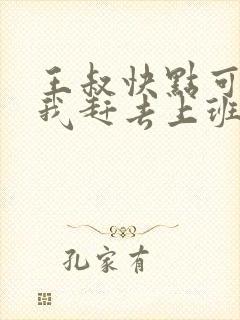 王叔快點可
我赶去上班
孔家有